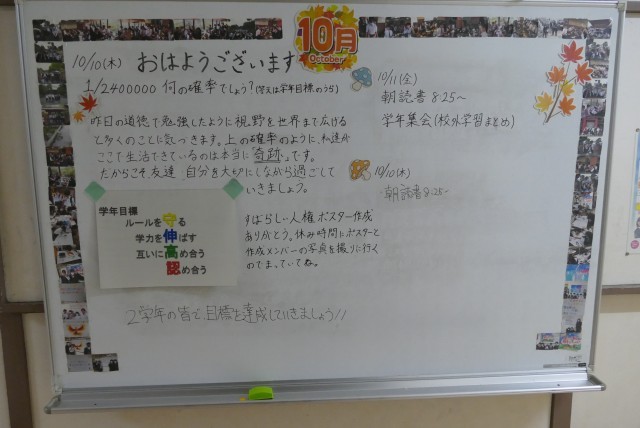 10月
October
10/10(木) おはようございます
1/2400000 何の確率でしょう?(答えは学年目標のうら)
昨日の道徳で勉強したように視野を世界まで広げる
と多くのことに気づきます。上の確率のように、私達が
ここで生活できているのは本当に「奇跡」です。
だからこそ友達、自分を大切にしながら過ごして
いきましょう。
学年目標
ルールを守る
学力を伸ばす
互いに高め合う
認め合う
すばらしい人権ポスター作成
ありがとう。休み時間にポスターと
作成メンバーの写真を撮りに行く
ので待っていてね。
2学年の皆で、目標を達成していきましょう!!
10/11(金)
朝読書 8:25~
学年集会(校外学習まとめ)
10/10(木)
朝読書 8:25~